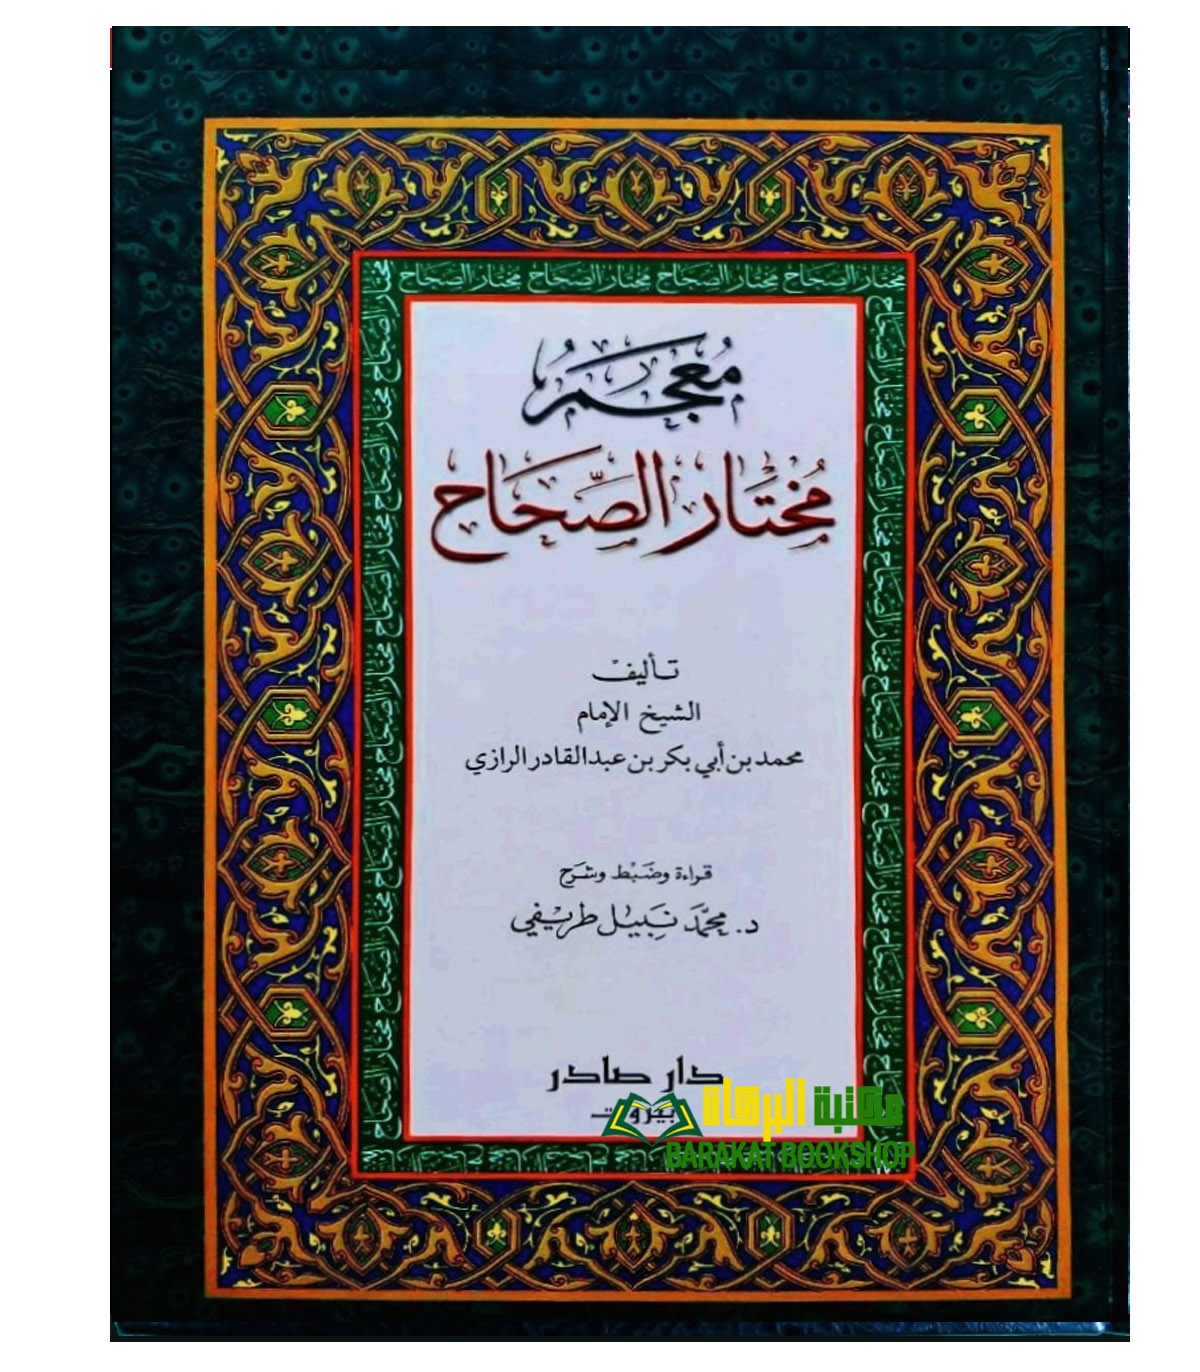 مختار الصحاح مختار الصحاح مختار الصحاح مختار الصحاح
مُعجَمُ
مُخْتَار الصِّحَاح
تأليف
الشيخ الإمام
محمد بن أبي بكر بن عبد القادر الرازي
قراءة وضَبْط وشَرح
د. محمَّد نَبيل طريفي
دار صادر
بيروت
مكتبة البركات
BARAKAT BOOKSHOP